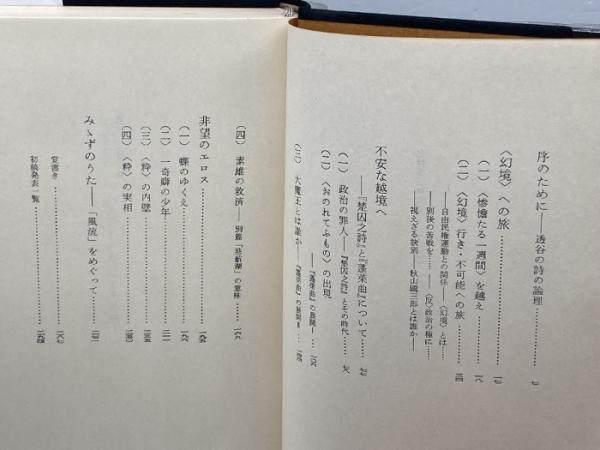 序のために――透谷の詩の論理…………七
〈幻境〉への旅…………一七
(一) 〈惨憺たる一週間〉を越え…………一八
(二) 〈幻境〉行き・不可能への旅…………二四
――自由民権運動との関係――〈幻境〉とは……
別後の苦戦を……――〈反〉政治の極に……
視えざる訣別――秋山國三郎とは誰か――
不安な越境へ
――『楚囚之詩』と『蓬萊曲』について…………七七
(一) 政治の罪人――『楚囚之詩』とその時代…………七八
(二) 〈おのれてふもの〉の出現
――『蓬萊曲』の展開Ⅰ…………一〇六
(三) 大魔王とは誰か――『蓬萊曲』の展開Ⅱ…………
(四) 素雄の救済――別篇「慈航湖」の意味…………
非望のエロス…………
(一) 蝶のゆくえ…………
(二) 一奇癖の少年…………
(三) 〈粋〉の内壁…………
(四) 〈粋〉の実相…………
みゝずのうた――「風流」をめぐって…………
覚書き…………
初稿発表一覧…………